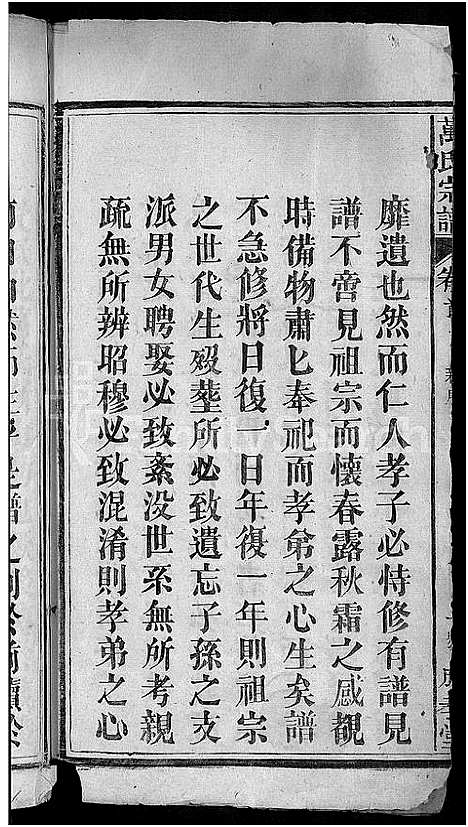 萬氏宗譜 卷首
靡遺也然而仁人孝子必恃修有譜見
譜不啻見祖宗而懷春露秋霜之感覩
時備物肅匕奉祀而孝弟之心生矣譜
不急修將日復一日年復一年則祖宗
之世代生歿塟所必致遺忘子孫之支
派男女聘娶必致紊没世系無所考親
疏無所辨昭穆必致混淆則孝弟之心